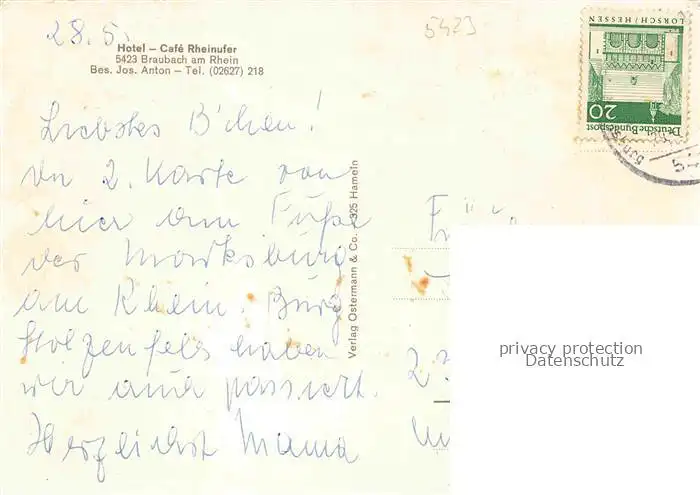 28.5.
5423
Hotel – Café Rheinufer
5423 Braubach am Rhein
Bes. Jos. Anton – Tel. (02627) 218
Liebstes B'chen!
2. Karte von
hier am Fuße
der Marksburg
am Rhein. Burg
Stolzenfels haben
wir auch passiert.
Herzlichst Mama
Verlag Ostermann & Co. 325 Hameln
LORSCH/HESSEN
20
Deutsche Bundespost
privacy protection
Datenschutz